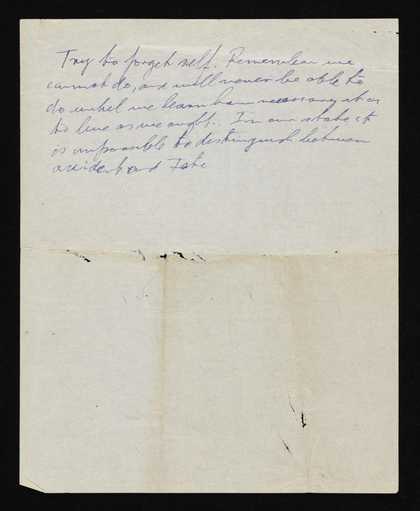 Try to forget self. Remember we
cannot do, and will never be able to
do until we learn how necessary it is
to live as we ought. In our state it
is impossible to distinguish between
accident and Fate